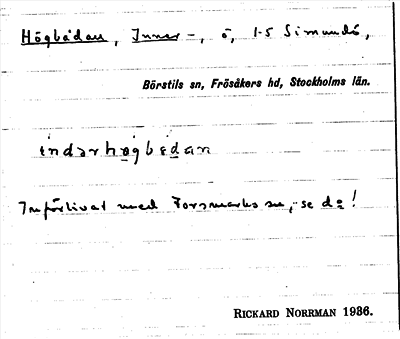 Högbådan, Inner-, ö, 1-5 Simundö,
Börstils sn, Frösåkers hd, Stockholms län.
indərhøgbɛdan
Införlivat med Forsmarks sn, se da!
RICKARD NORRMAN 1936.